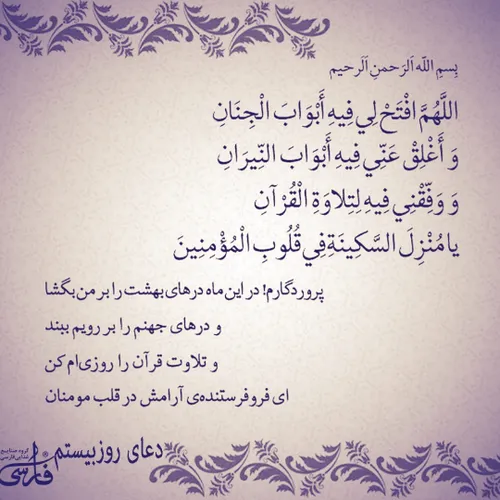 بِسمِ اللّه اَلرَحمنِ اَلرحیم
اللَّهُمَّ افْتَحْ لِي فِيهِ أَبْوَابَ الْجِنَانِ
وَ أَغْلِقْ عَنِّي فِيهِ أَبْوَابَ النِّيرَانِ
وَ وَفِّقْنِي فِيهِ لِتِلاوَةِ الْقُرْآنِ
يا مُنْزِلَ السَّكِينَةِ فِي قُلُوبِ الْمُؤْمِنِينَ
پروردگارم! در این ماه درهای بهشت را بر من بگشا
و درهای جهنم را بر رویم ببند
و تلاوت قرآن را روزی‌ام کن
ای فروفرستنده‌ی آرامش در قلب مومنان
دعای روز بیستم
گروه صنایع
غذایی فارسی
فارسی®